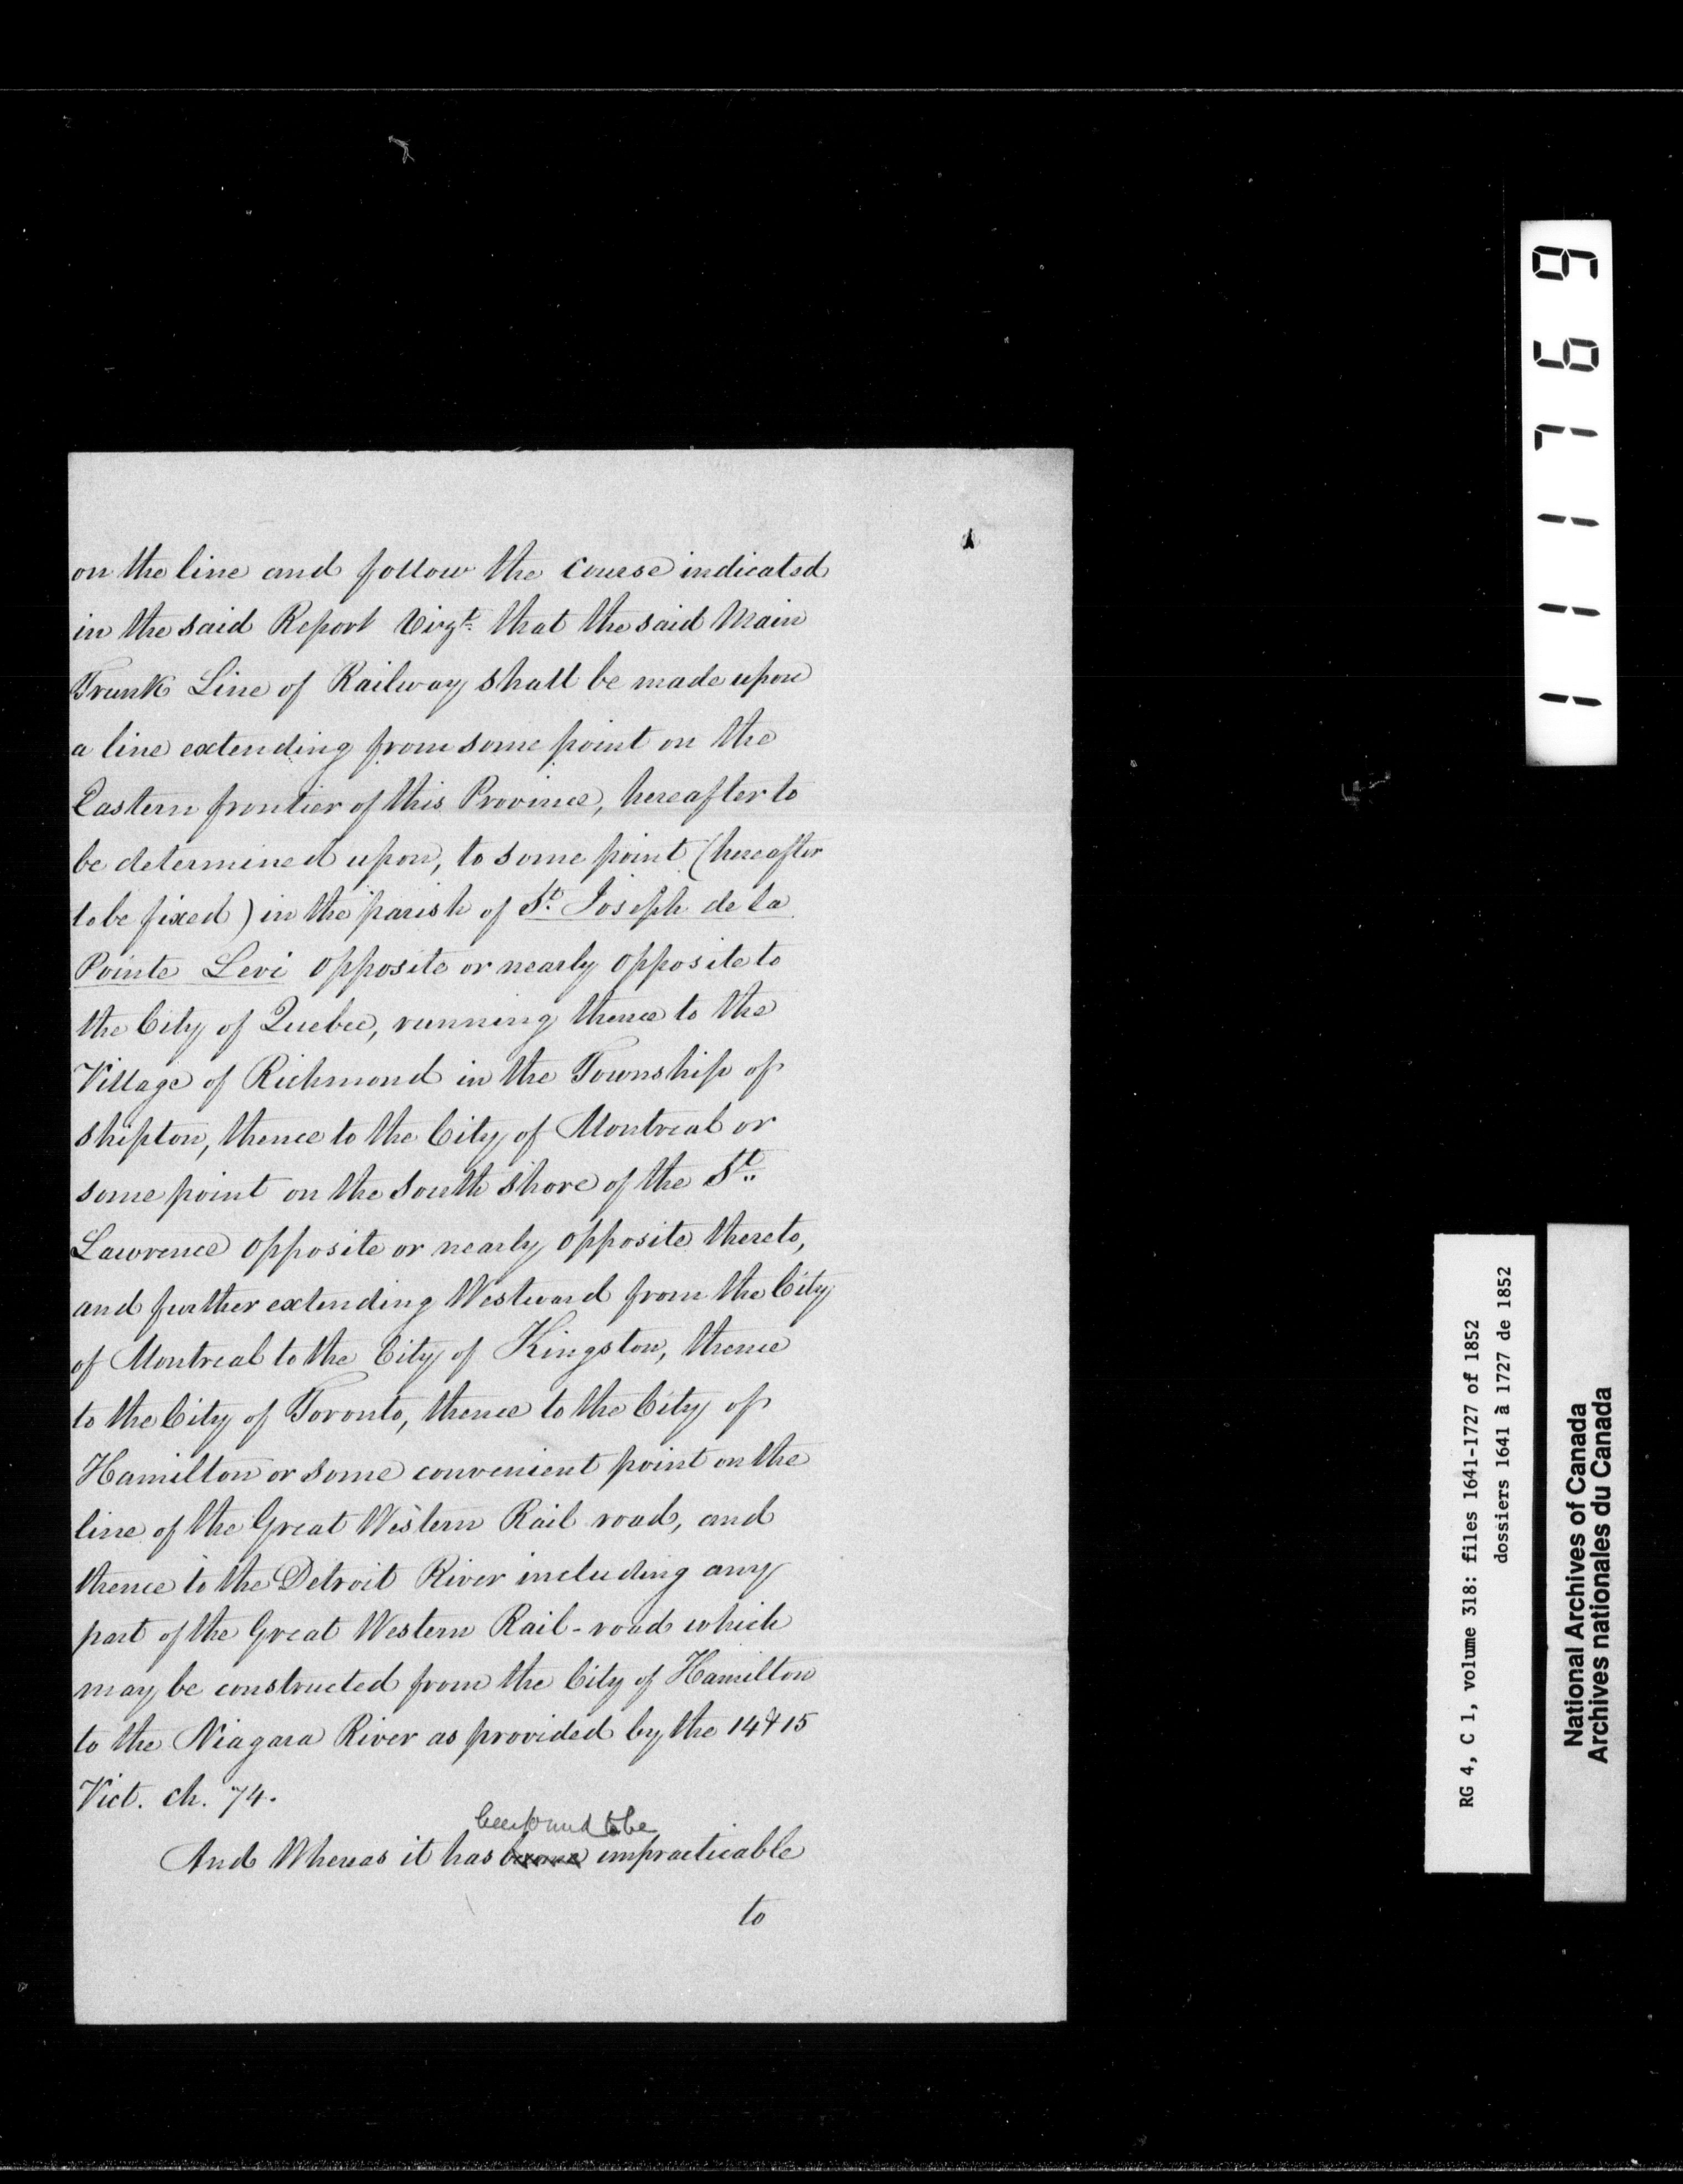 on the line and follow the course indicated
in the said Report Vizt. that the said Main
Trunk Line of Railway shall be made upon
a line extending from some point on the
Eastern frontier of this Province, hereafter to
be determined upon, to some point (hereafter
to be fixed) in the parish of St. Joseph de la
Pointe Levi opposite or nearly opposite to
the City of Quebec, running thence to the
Village of Richmond in the Township of
Shipton, thence to the City of Montreal or
some point on the South Shore of the St.
Lawrence opposite or nearly opposite thereto,
and further extending Westward from the City
of Montreal to the City of Kingston, thence
to the City of Toronto, thence to the City of
Hamilton or some convenient point on the
line of the Great Western Rail road, and
thence to the Detroit River including any
part of the Great Western Rail-road which
may be constructed from the City of Hamilton
to the Niagara River as provided by the 14 & 15
Vict. ch. 74.
been found to be
And Whereas it has become impracticable
to
111769
RG 4, C 1, volume 318: files 1641-1727 of 1852
dossiers 1641 à 1727 de 1852
National Archives of Canada
Archives nationales du Canada